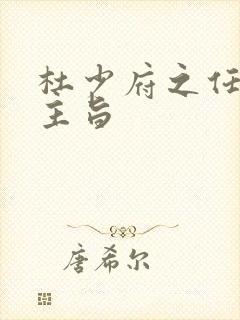 杜少府之任
主旨
唐希尔